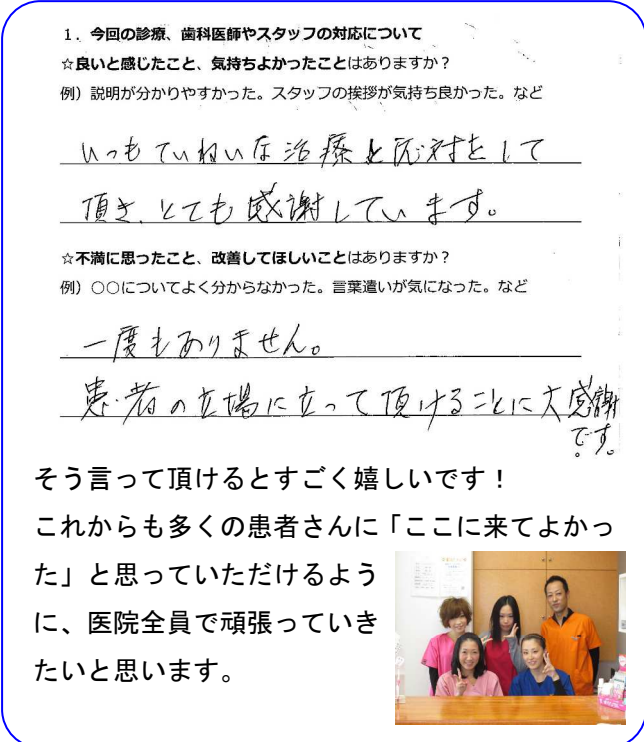 1. 今回の診療、歯科医師やスタッフの対応について
☆良いと感じたこと、気持ちよかったことはありますか?
例)説明が分かりやすかった。スタッフの挨拶が気持ち良かった。など
いつもていねいな治療と応対をして
頂き、とても感謝しています。
☆不満に思ったこと、改善してほしいことはありますか?
例)○○についてよく分からなかった。言葉遣いが気になった。など
一度もありません。
患者の立場に立って頂けることに大感謝
です。
そう言って頂けるとすごく嬉しいです!
これからも多くの患者さんに「ここに来てよかっ
た」と思っていただけるよう
に、医院全員で頑張っていき
たいと思います。